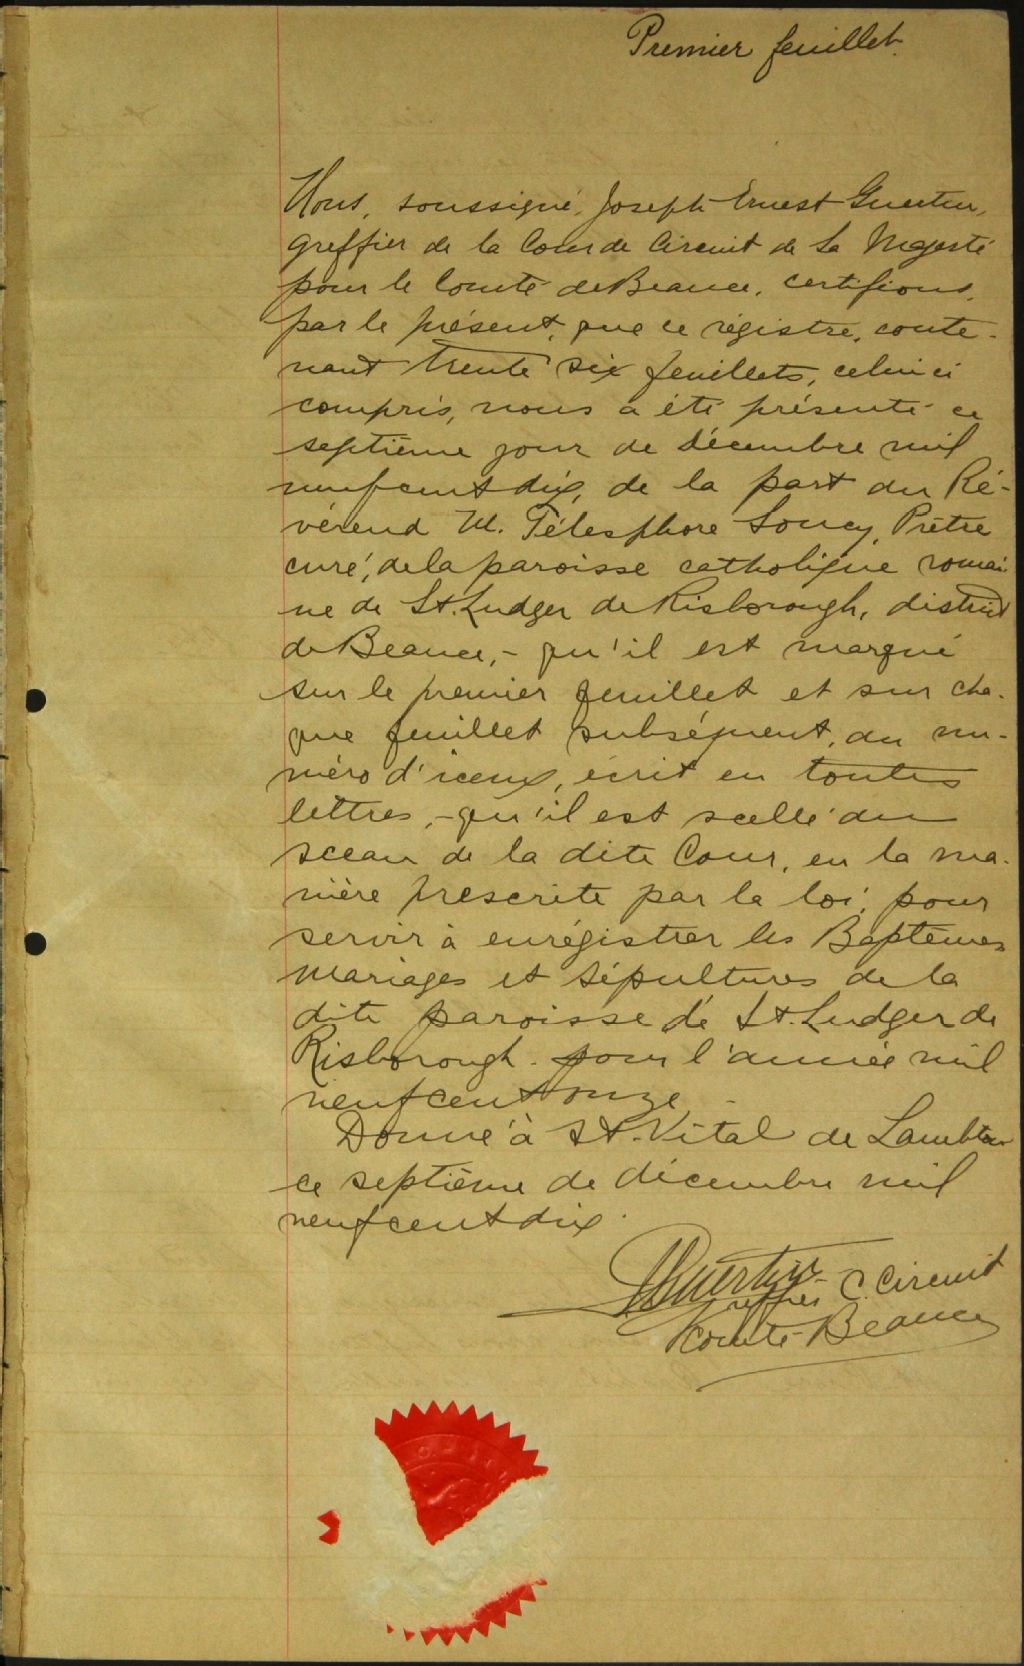 Premier feuillet.
Nous, soussigné, Joseph Ernest Guertin,
greffier de la Cour de Circuit de Sa Majesté
pour le Comté de Beauce, certifions,
par le présent, que ce régistre, conte-
nant trente six feuillets, celui ci
compris, nous a été présenté ce
septième jour de décembre mil
neuf cent dix, de la part du Ré-
vérend M. Télesphore Soucy, Prêtre
curé, de la paroisse catholique romai-
ne de St. Ludger de Risborough, district
de Beauce, - qu'il est marqué
sur le premier feuillet et sur cha-
que feuillet subséquent, du nu-
méro d'iceux, écrit en toutes
lettres, - qu'il est scellé du
sceau de la dite Cour, en la ma-
nière prescrite par la loi, pour
servir à enrégistrer les Baptêmes
Mariages et Sépultures de la
dite paroisse de St. Ludger de
Risborough pour l'année mil
neuf cent onze.
Donné à St. Vital de Lambton
ce septième de décembre mil
neuf cent dix.
Guertin
Greffier C. Circuit
Comté Beauce